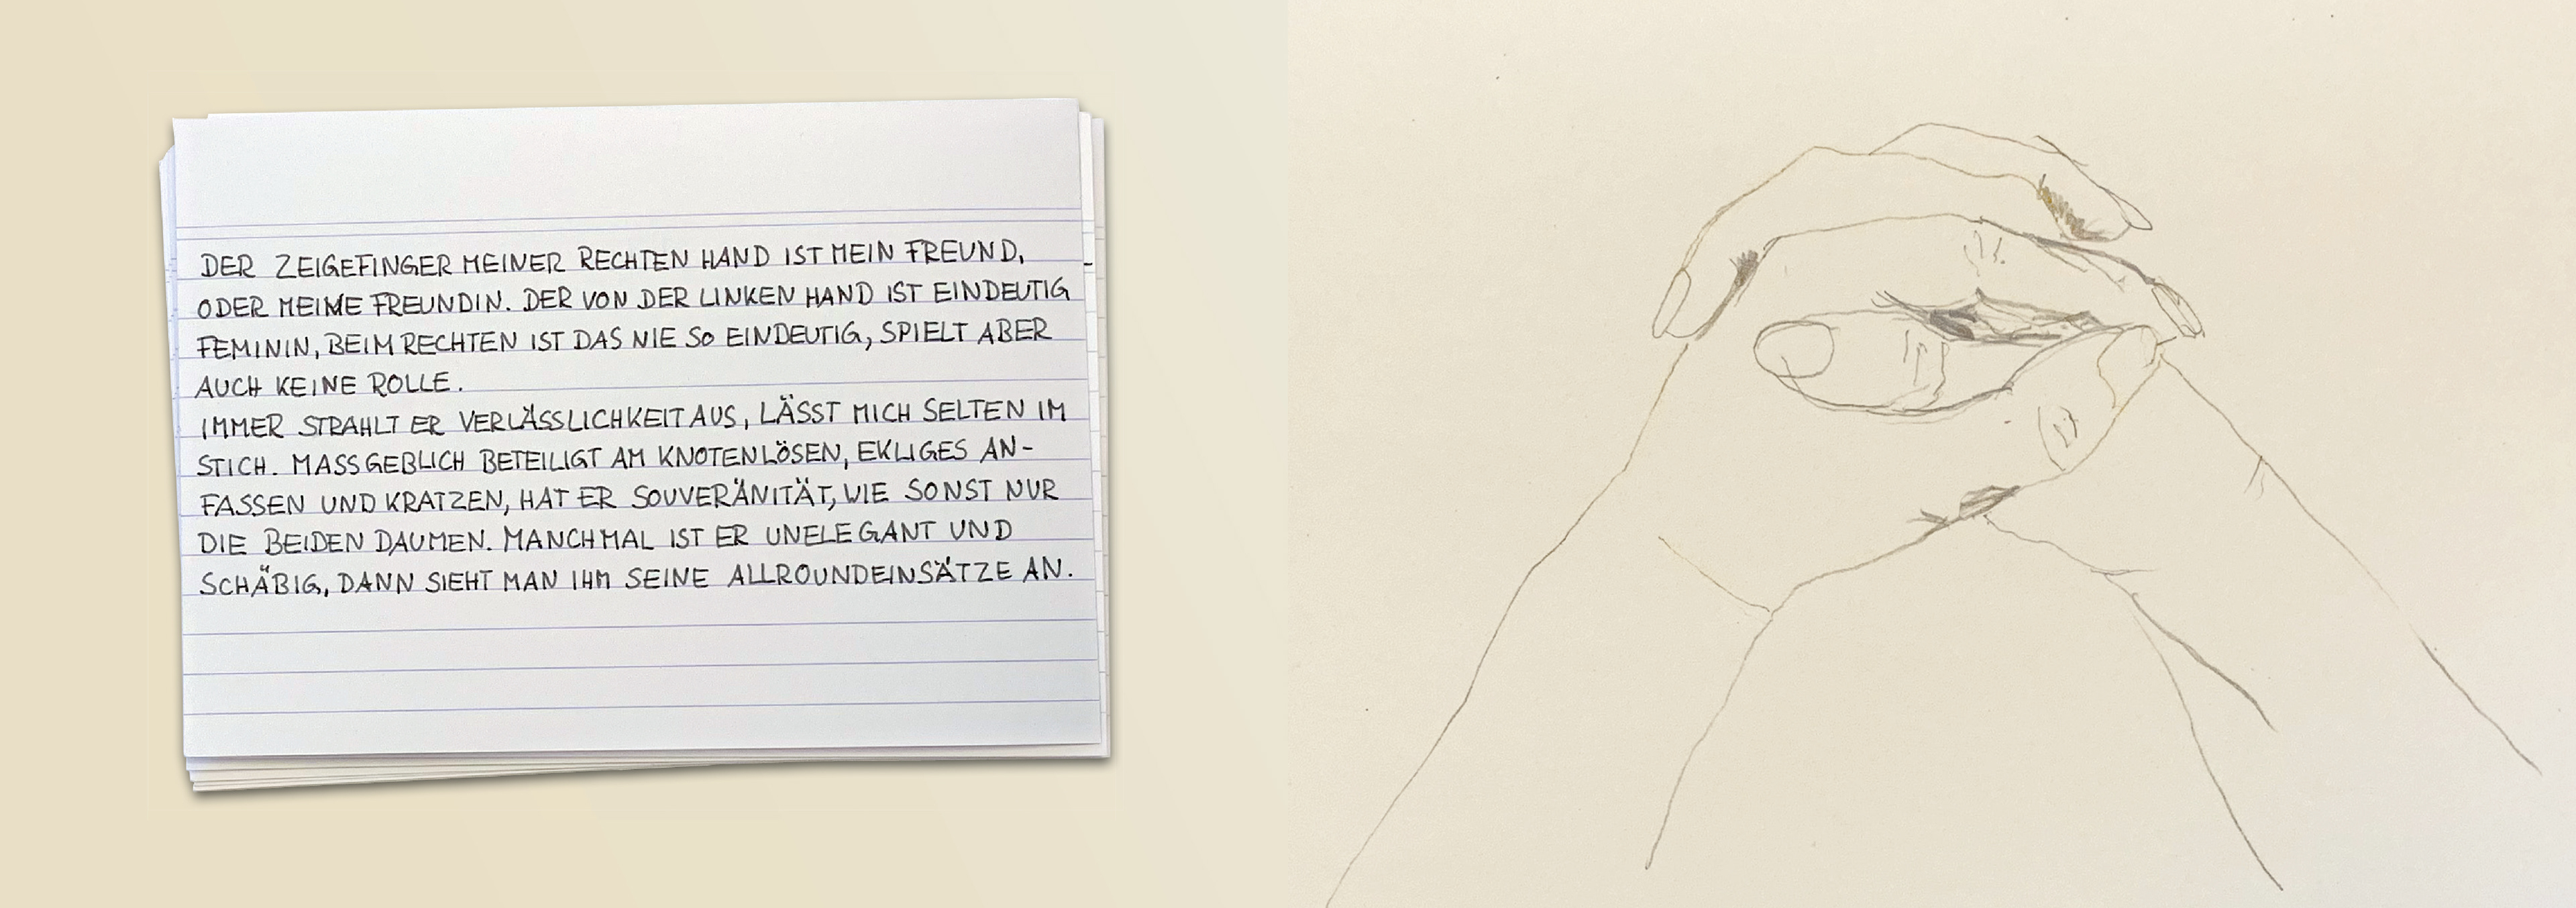 DER ZEIGEFINGER MEINER RECHTEN HAND IST MEIN FREUND,
ODER MEINE FREUNDIN. DER VON DER LINKEN HAND IST EINDEUTIG
FEMININ, BEIM RECHTEN IST DAS NIE SO EINDEUTIG, SPIELT ABER
AUCH KEINE ROLLE.
IMMER STRAHLT ER VERLÄSSLICHKEIT AUS, LÄSST MICH SELTEN IM
STICH. MASSGEBLICH BETEILIGT AM KNOTENLÖSEN, EKLIGES AN-
FASSEN UND KRATZEN, HAT ER SOUVERÄNITÄT, WIE SONST NUR
DIE BEIDEN DAUMEN. MANCHMAL IST ER UNELEGANT UND
SCHÄBIG, DANN SIEHT MAN IHM SEINE ALLROUNDEINSÄTZE AN.